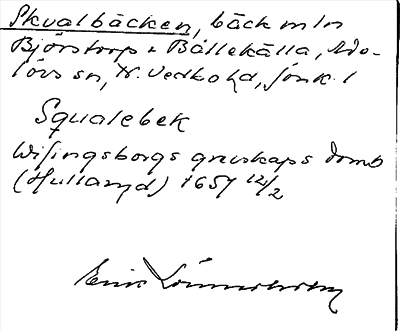 Skvalbäcken, bäck mln
Björstorp o Bällekälla, Ado-
lövs sn, N. Vedbo hd, Jönk. l
Squalebek
Wisingsborgs grevskaps domb
(Hullaryd) 1651 12/2
Eric